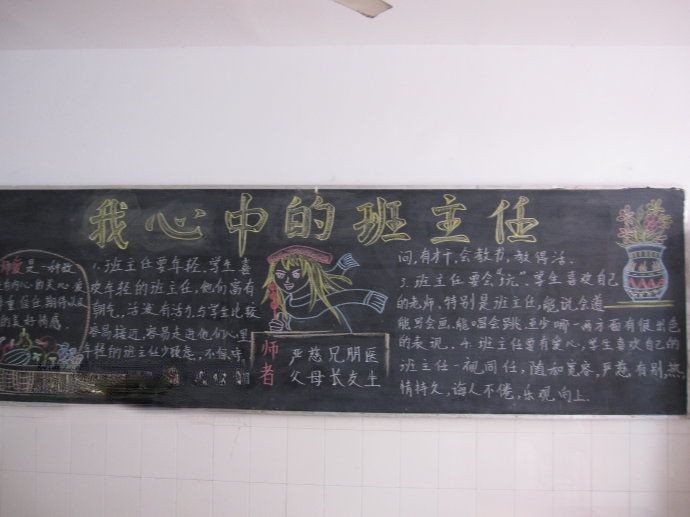 我心中的班主任
师爱是一种教
重信任期待以及
的美好情感
1.班主任要年轻、学生喜
欢年轻的班主任,他们富有
朝气、活泼有活力与学生比较
容易接近,容易走进他们心里
年轻的班主任少疲惫,不保守,
师者
严慈兄朋医
父母长友生
问,有才干,会教书,教得活。
3.班主任要会“玩”、学生喜欢自己
的老师,特别是班主任,能说会道
能写会画,能唱会跳,至少哪一两方面有很出色
的表现。4.班主任要有爱心,学生喜欢自己的
班主任一视同仁,随和宽容,严慈有别,热
情持久,诲人不倦,乐观向上.